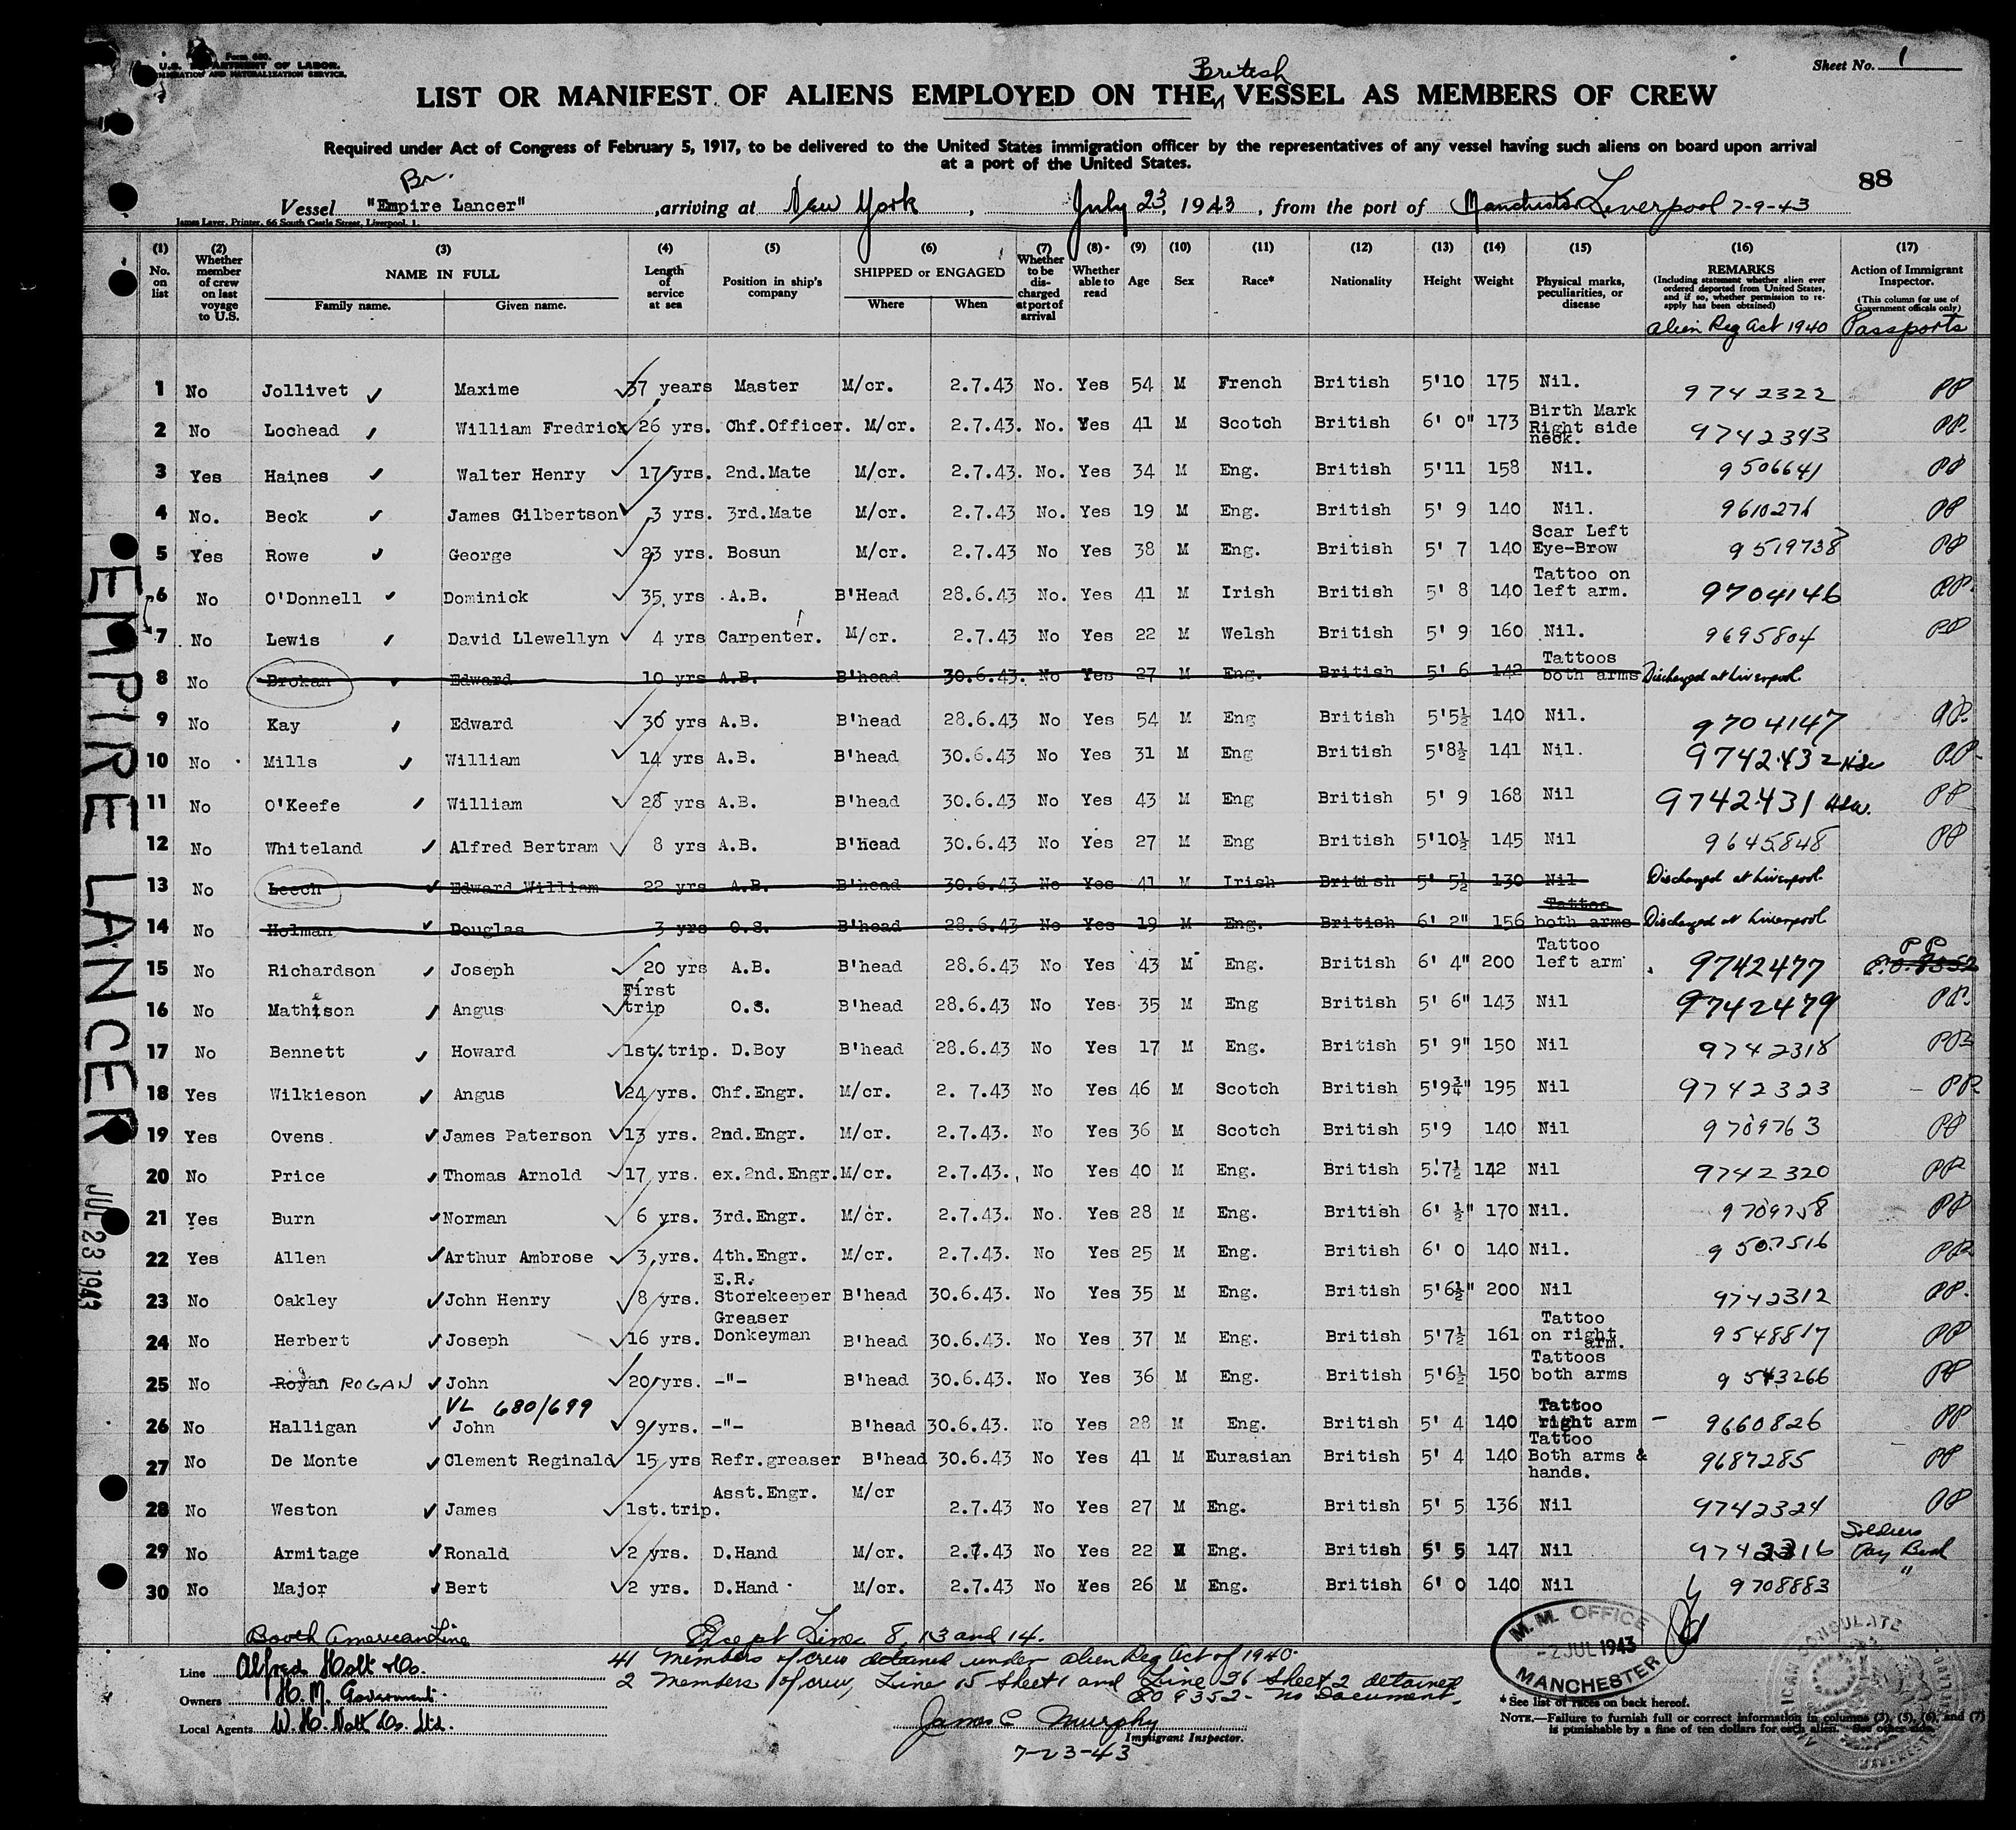 Form 680.
U.S. DEPARTMENT OF LABOR.
IMMIGRATION AND NATURALIZATION SERVICE.
Sheet No. 1
British
LIST OR MANIFEST OF ALIENS EMPLOYED ON THE VESSEL AS MEMBERS OF CREW
Required under Act of Congress of February 5, 1917, to be delivered to the United States immigration officer by the representatives of any vessel having such aliens on board upon arrival
at a port of the United States.
88
Br.
Vessel "Empire Lancer" , arriving at New York , July 23, 1943 , from the port of Manchester Liverpool 7-9-43
James Laver, Printer, 66 South Castle Street, Liverpool, 1.
(1) No. on list (2) Whether member of crew on last voyage to U.S. (3) NAME IN FULL Family name. Given name. (4) Length of service at sea (5) Position in ship's company (6) SHIPPED or ENGAGED Where When (7) Whether to be discharged at port of arrival (8) Whether able to read (9) Age (10) Sex (11) Race* (12) Nationality (13) Height (14) Weight (15) Physical marks, peculiarities, or disease (16) REMARKS (Including statement whether alien ever ordered deported from United States, and if so, whether permission to re-apply has been obtained) (17) Action of Immigrant Inspector. (This column for use of Government officials only)
Alien Reg Act 1940 Passports
1 No Jollivet Maxime 37 years Master M/cr. 2.7.43 No. Yes 54 M French British 5'10 175 Nil. 9742322 PP
2 No Lochead William Fredrick 26 yrs. Chf.Officer. M/cr. 2.7.43. No. Yes 41 M Scotch British 6' 0" 173 Birth Mark Right side neck. 9742343 PP.
3 Yes Haines Walter Henry 17 yrs. 2nd.Mate M/cr. 2.7.43. No. Yes 34 M Eng. British 5'11 158 Nil. 9506641 PP
4 No. Beck James Gilbertson 3 yrs. 3rd.Mate M/cr. 2.7.43 No. Yes 19 M Eng. British 5' 9 140 Nil. 9610276 PP
5 Yes Rowe George 23 yrs. Bosun M/cr. 2.7.43 No Yes 38 M Eng. British 5' 7 140 Scar Left Eye-Brow 9519738 PP
6 No O'Donnell Dominick 35 yrs A.B. B'Head 28.6.43 No. Yes 41 M Irish British 5' 8 140 Tattoo on left arm. 9704146 PP.
7 No Lewis David Llewellyn 4 yrs Carpenter. M/cr. 2.7.43 No Yes 22 M Welsh British 5' 9 160 Nil. 9695804 PP
8 No Brokan Edward 10 yrs A.B. B'head 30.6.43. No Yes 27 M Eng. British 5' 6 142 Tattoos both arms Discharged at Liverpool.
9 No Kay Edward 36 yrs A.B. B'head 28.6.43 No Yes 54 M Eng British 5'5½ 140 Nil. 9704147 PP.
10 No Mills William 14 yrs A.B. B'head 30.6.43 No Yes 31 M Eng British 5'8½ 141 Nil. 9742432 PP-
11 No O'Keefe William 28 yrs A.B. B'head 30.6.43 No Yes 43 M Eng British 5' 9 168 Nil 9742431 PP
12 No Whiteland Alfred Bertram 8 yrs A.B. B'head 30.6.43 No Yes 27 M Eng British 5'10½ 145 Nil 9645848 PP
13 No Leech Edward William 22 yrs A.B. B'head 30.6.43 No Yes 41 M Irish British 5' 5½ 130 Nil Discharged at Liverpool.
14 No Holman Douglas 3 yrs O.S. B'head 28.6.43 No Yes 19 M Eng. British 6' 2" 156 Tattoo both arms Discharged at Liverpool
15 No Richardson Joseph 20 yrs A.B. B'head 28.6.43 No Yes 43 M Eng. British 6' 4" 200 Tattoo left arm 9742477 PP
16 No Mathison Angus First trip O.S. B'head 28.6.43 No Yes 35 M Eng British 5' 6" 143 Nil 9742479 PP.
17 No Bennett Howard 1st.trip. D.Boy B'head 28.6.43 No Yes 17 M Eng. British 5' 9" 150 Nil 9742318 PP
18 Yes Wilkieson Angus 24 yrs. Chf.Engr. M/cr. 2. 7.43 No Yes 46 M Scotch British 5'9¾" 195 Nil 9742323 - PP
19 Yes Ovens. James Paterson 13 yrs. 2nd.Engr. M/cr. 2.7.43. No Yes 36 M Scotch British 5'9 140 Nil 9709763 PP
20 No Price Thomas Arnold 17 yrs. ex.2nd.Engr. M/cr. 2.7.43. No Yes 40 M Eng. British 5'7½ 142 Nil 9742320 PP
21 Yes Burn Norman 6 yrs. 3rd.Engr. M/cr. 2.7.43. No. Yes 28 M Eng. British 6' ½" 170 Nil. 9709758 PP
22 Yes Allen Arthur Ambrose 3 yrs. 4th.Engr. M/cr. 2.7.43. No Yes 25 M Eng. British 6' 0 140 Nil. 9507516 PP
23 No Oakley John Henry 8 yrs. E.R. Storekeeper B'head 30.6.43. No Yes 35 M Eng. British 5'6½" 200 Nil 9742312 PP.
24 No Herbert Joseph 16 yrs. Greaser Donkeyman B'head 30.6.43. No Yes 37 M Eng. British 5'7½ 161 Tattoo on right arm. 9548817 PP
25 No Royan ROGAN John 20 yrs. -"- B'head 30.6.43. No Yes 36 M Eng. British 5'6½ 150 Tattoos both arms 9543266 PP
VL 680/699
26 No Halligan John 9 yrs. -"- B'head 30.6.43. No Yes 28 M Eng. British 5' 4 140 Tattoo right arm - 9660826 PP
27 No De Monte Clement Reginald 15 yrs Refr.greaser B'head 30.6.43 No Yes 41 M Eurasian British 5' 4 140 Tattoo Both arms & hands. 9687285 PP
28 No Weston James 1st.trip. Asst.Engr. M/cr 2.7.43 No Yes 27 M Eng. British 5' 5 136 Nil 9742324 PP
29 No Armitage Ronald 2 yrs. D.Hand M/cr. 2.7.43 No Yes 22 M Eng. British 5' 5 147 Nil 9742316 Soldiers Pay Book
30 No Major Bert 2 yrs. D.Hand M/cr. 2.7.43 No Yes 26 M Eng. British 6' 0 140 Nil 9708883 "
EMPIRE LANCER
JUL 23 1943
Booth American Line
Line Alfred Holt & Co.
Owners H.M. Government.
Local Agents W.H. Nott & Co. Ltd.
Except Line 8, 13 and 14.
41 members of crew detained under Alien Reg Act of 1940.
2 members of crew, Line 15 Sheet 1 and Line 26 Sheet 2 detained
EO 9352 - No Document.
James C Murphy
Immigrant Inspector.
7-23-43
M.M. OFFICE
-2 JUL 1943
MANCHESTER
* See list of races on back hereof.
NOTE.—Failure to furnish full or correct information in columns (3), (5), (6), and (7)
is punishable by a fine of ten dollars for each alien. See other side.
AMERICAN CONSULATE